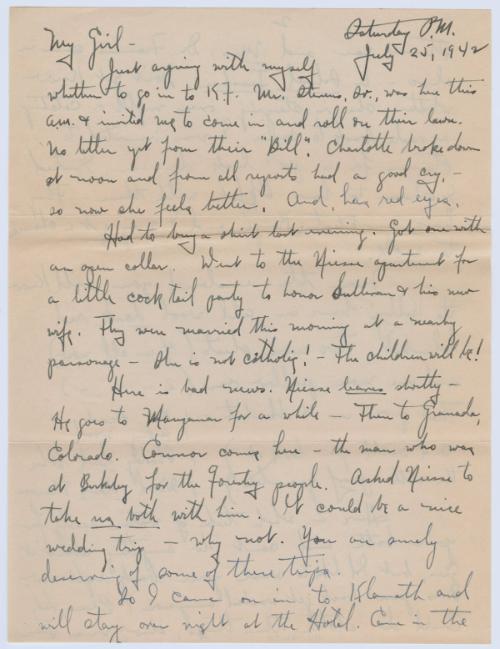 Saturday P.M.
July 25, 1942
My Girl -
Just arguing with myself
whether to go in to K.F. Mr. Stevens, Sr., was here this
a.m. & invited me to come in and roll on their lawn.
No letter yet from their "Bill". Charlotte broke down
at noon and from all reports had a good cry, -
so now she feels better. And, has red eyes.
Had to buy a shirt last evening. Got one with
an open collar. Went to the Niesse apartment for
a little cocktail party to honor Sullivan & his new
wife. They were married this morning at a nearby
parsonage - She is not catholic! - The children will be!
Here is bad news. Niesse leaves shortly -
He goes to Manzanar for a while - Then to Granada,
Colorado. Connor comes here - the man who was
at Berkeley for the Forestry people. Asked Niesse to
take us both with him. It could be a nice
wedding trip - why not. You are surely
deserving of some of these trips.
So I came on in to Klamath and
will stay over night at the Hotel. Came in the